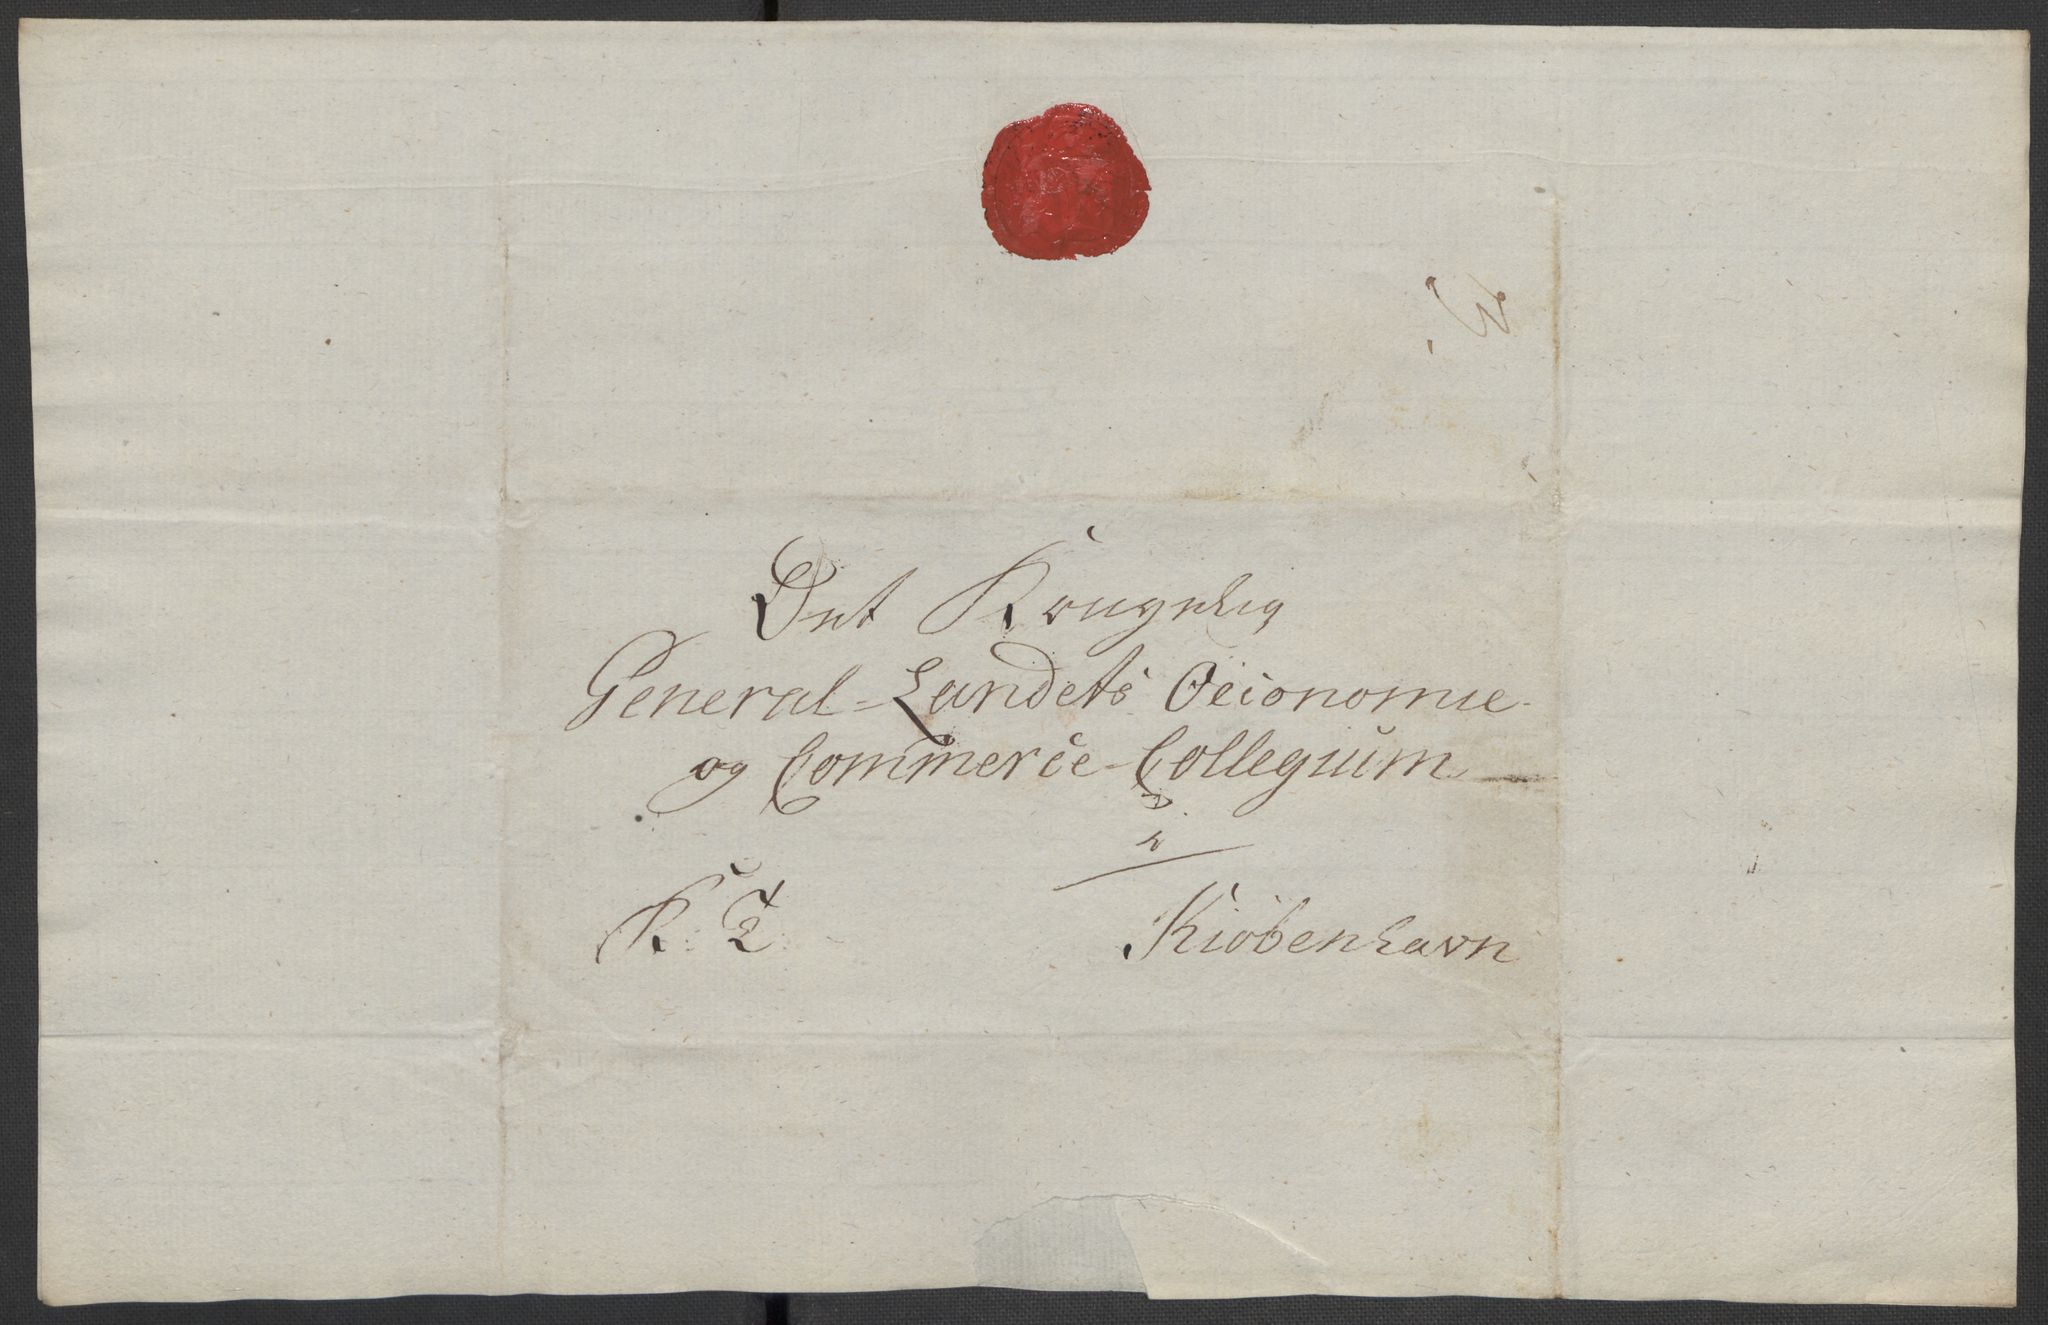 Det Kongelig
General-Landets Oeconomie-
og Commerce-Collegium
i
K: T:
Kiøbenhavn